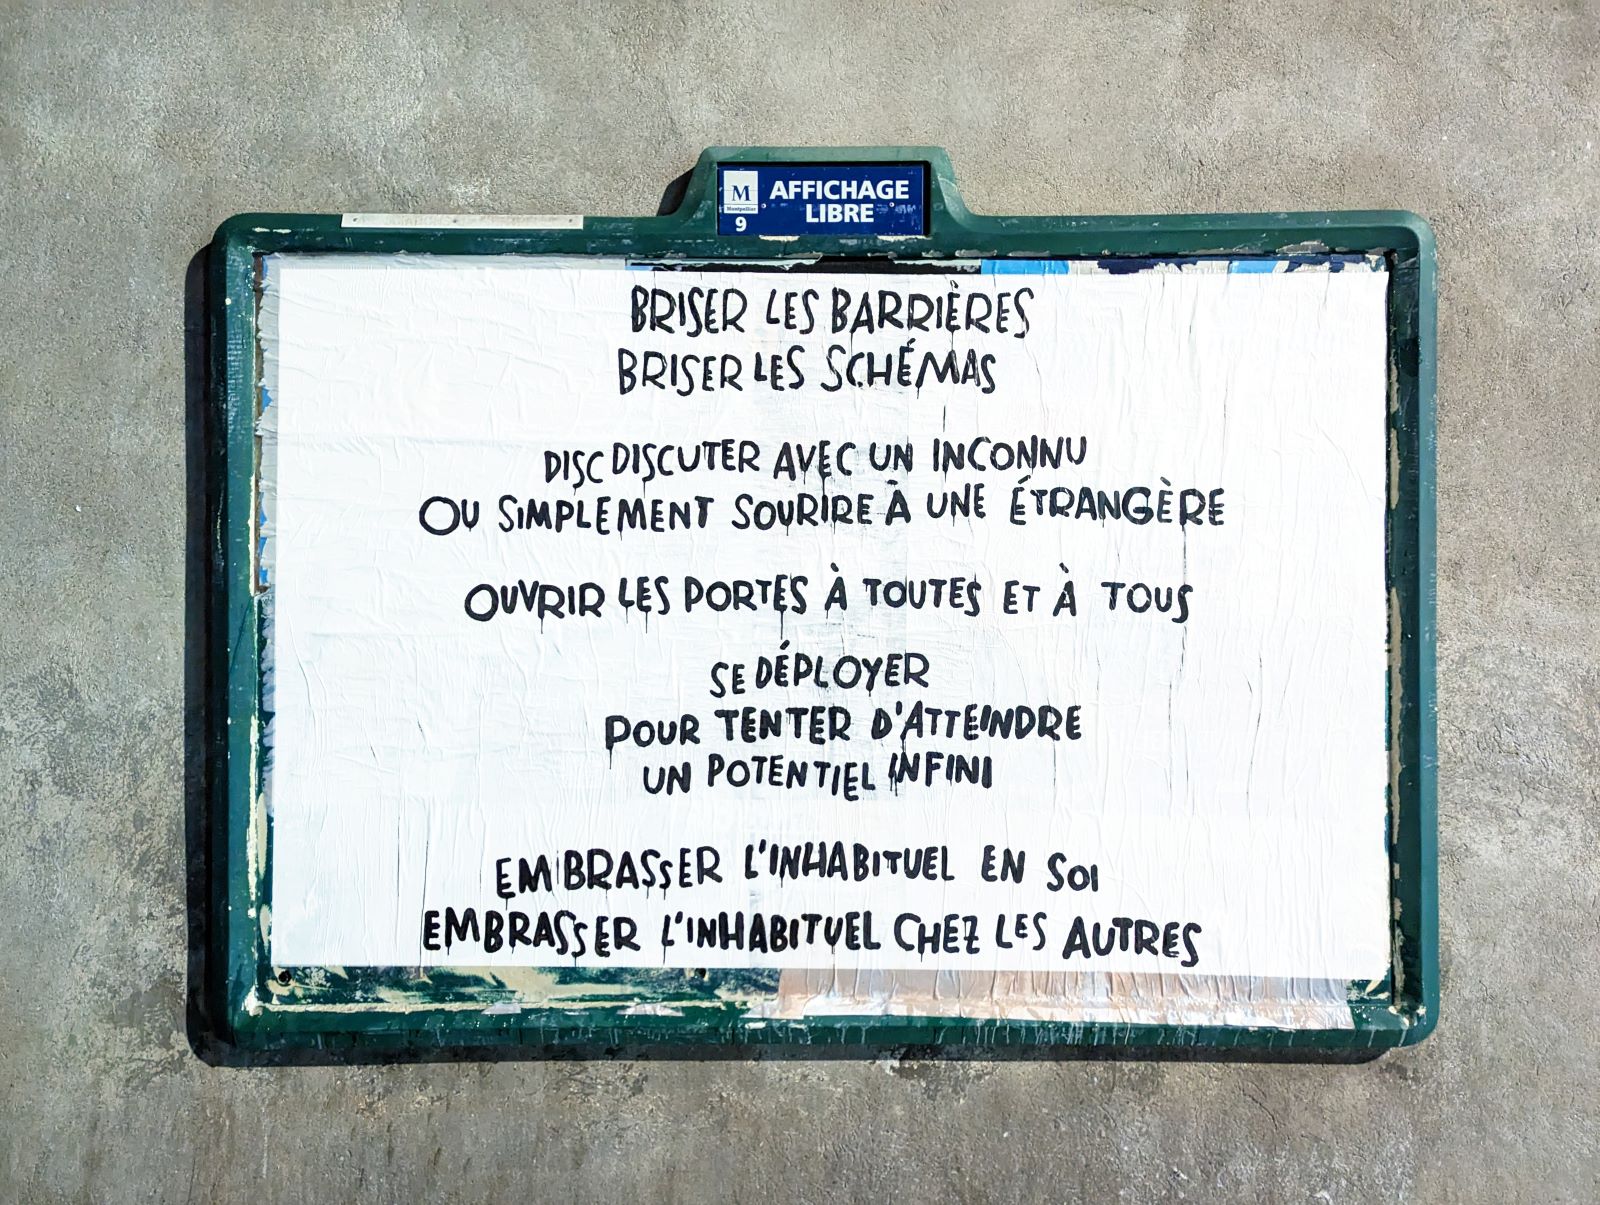 M AFFICHAGE
Montpellier LIBRE
9
BRISER LES BARRIÈRES
BRISER LES SCHÉMAS
DISC DISCUTER AVEC UN INCONNU
OU SIMPLEMENT SOURIRE À UNE ÉTRANGÈRE
OUVRIR LES PORTES À TOUTES ET À TOUS
SE DÉPLOYER
POUR TENTER D'ATTEINDRE
UN POTENTIEL INFINI
EMBRASSER L'INHABITUEL EN SOI
EMBRASSER L'INHABITUEL CHEZ LES AUTRES